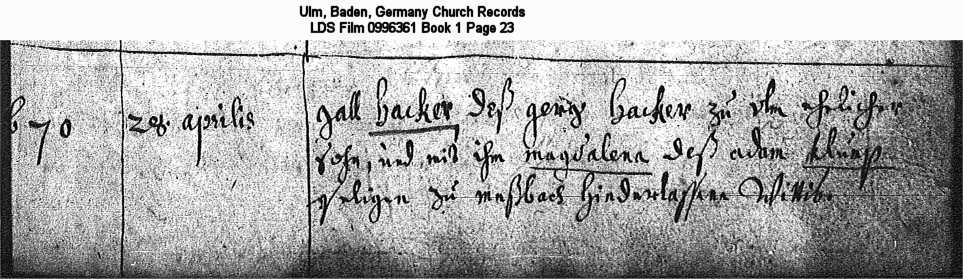 Ulm, Baden, Germany Church Records
LDS Film 0996361 Book 1 Page 23
70 28. aprilis gall hacker deß gerig hacker zu Vlm ehrlicher
sohn, und mit ihm magdalena deß adam
seeligen zu meßbach hinderlassene Wittib.